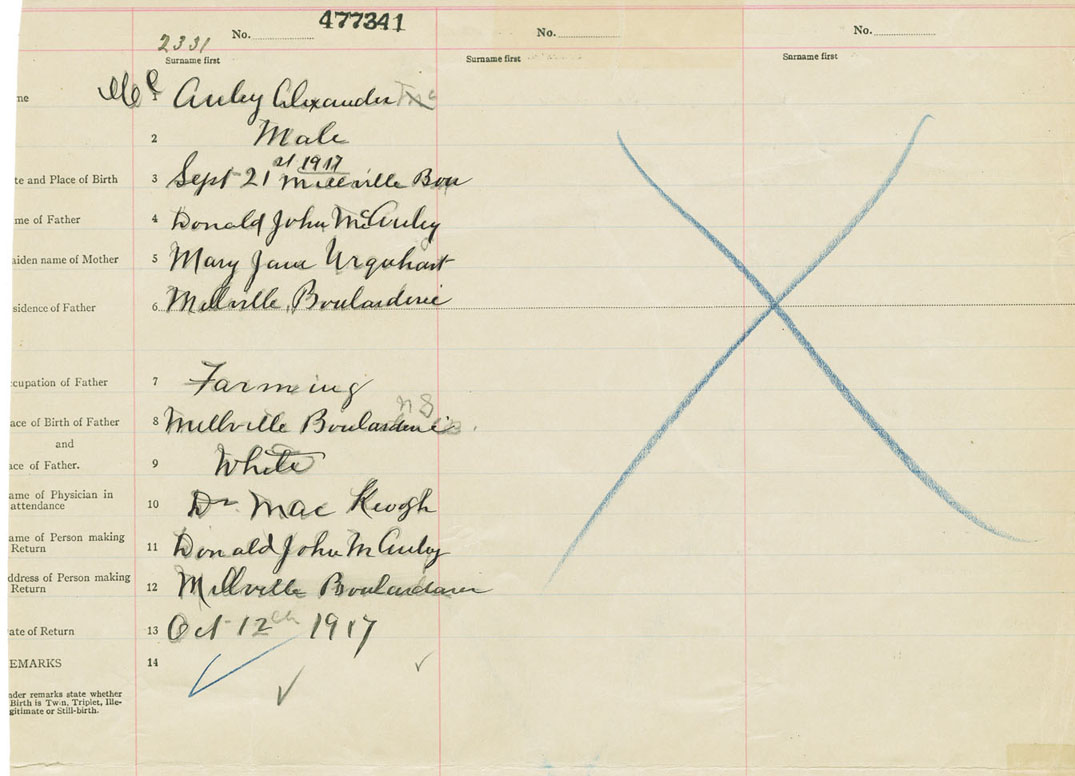 477341
No. No. No.
2331
Surname first Surname first Surname first
me 1 Mc Auley Alexander Mc
2 Male
te and Place of Birth 3 Sept 21st 1917 Millville Bou
me of Father 4 Donald John McAuley
aiden name of Mother 5 Mary Jane Urquhart
sidence of Father 6 Millville, Boularderie
cupation of Father 7 Farming
NS
ace of Birth of Father 8 Millville Boularderie
and
ace of Father. 9 White
ame of Physician in
attendance 10 Dr Mac Keogh
ame of Person making
Return 11 Donald John McAuley
ddress of Person making
Return 12 Millville
ate of Return 13 Oct 12th 1917
EMARKS 14
nder remarks state whether
Birth is Twin, Triplet, Ille-
gitimate or Still-birth.